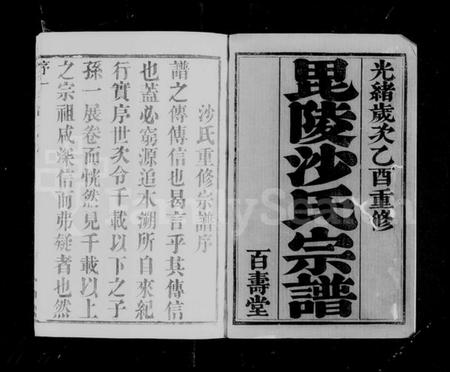 光緒歲次乙酉重修
毘陵沙氏宗譜
百壽堂
沙氏重修宗譜序
譜之傳傳信也曷言乎其傳信
也蓋必窮源追本溯所自來紀
行實序世次令千載以下之子
孫一展卷而恍然見千載以上
之宗祖咸深信而弗疑者也然
序一